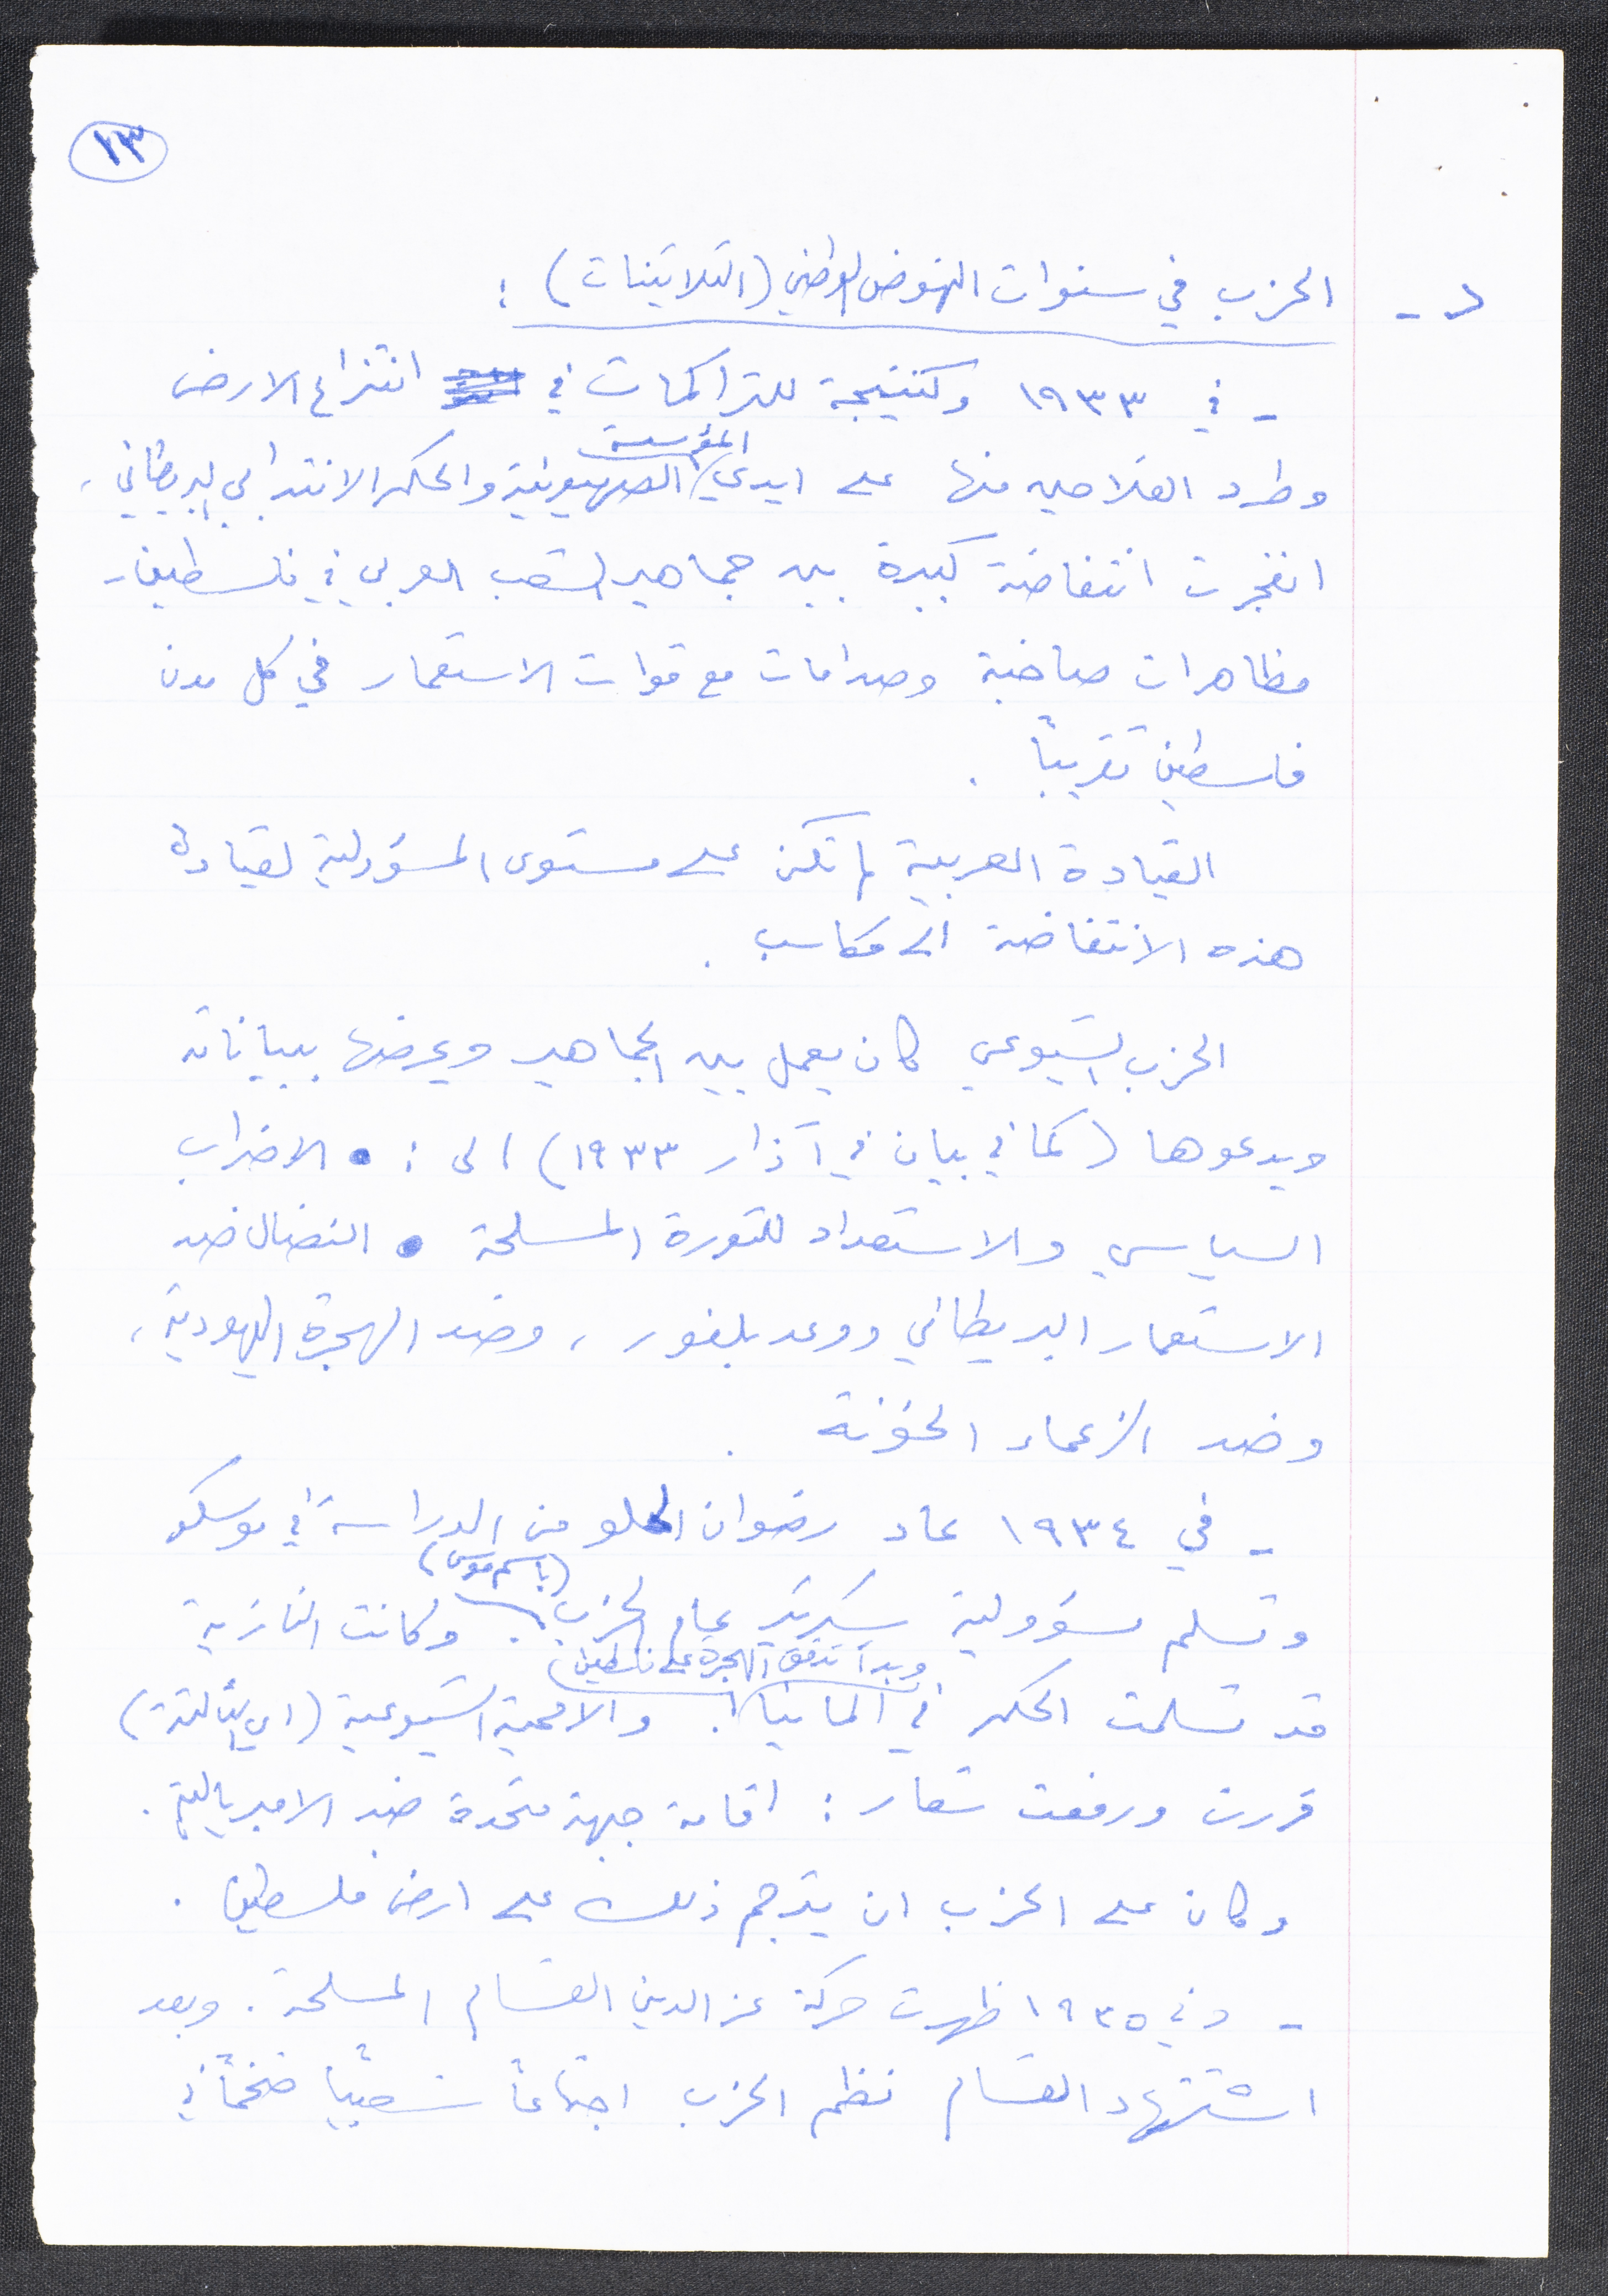 ١٣
د - الحزب في سنوات النهوض الوطني (الثلاثينات) :
- في ١٩٣٣ وكنتيجة للتراكمات في انتزاع الارض
المؤسسة
وطرد الفلاحين منها على ايدي الصهيونية والحكم الانتدابي البريطاني،
انفجرت انتفاضة كبيرة بين جماهير الشعب العربي في فلسطين -
مظاهرات صاخبة وصدامات مع قوات الاستعمار في كل مدن
فلسطين تقريباً .
القيادة العربية لم تكن على مستوى المسؤولية لقيادة
هذه الانتفاضة الى مكاسب .
الحزب الشيوعي كان يعمل بين الجماهير ويحرضها ببياناته
ويدعوها (كما في بيان في آذار ١٩٣٣) الى : • الاضراب
السياسي والاستعداد للثورة المسلحة • النضال ضد
الاستعمار البريطاني ووعد بلفور ، وضد الهجرة اليهودية ،
وضد الزعماء الخونة .
- في ١٩٣٤ عاد رضوان الحلو من الدراسة في موسكو
(باسم موسى)
وتسلم مسؤولية سكرتير عام الحزب . وكانت النازية
وبدأ تدفق الهجرة على فلسطين
قد تسلمت الحكم في المانيا . والاممية الشيوعية (اي الثالثة)
قررت ورفعت شعار : اقامة جبهة متحدة ضد الامبريالية .
وكان على الحزب ان يترجم ذلك على ارض فلسطين .
- وفي ١٩٣٥ ظهرت حركة عز الدين القسام المسلحة . وبعد
استشهاد القسام نظم الحزب اجتماعاً شعبياً ضخماً في